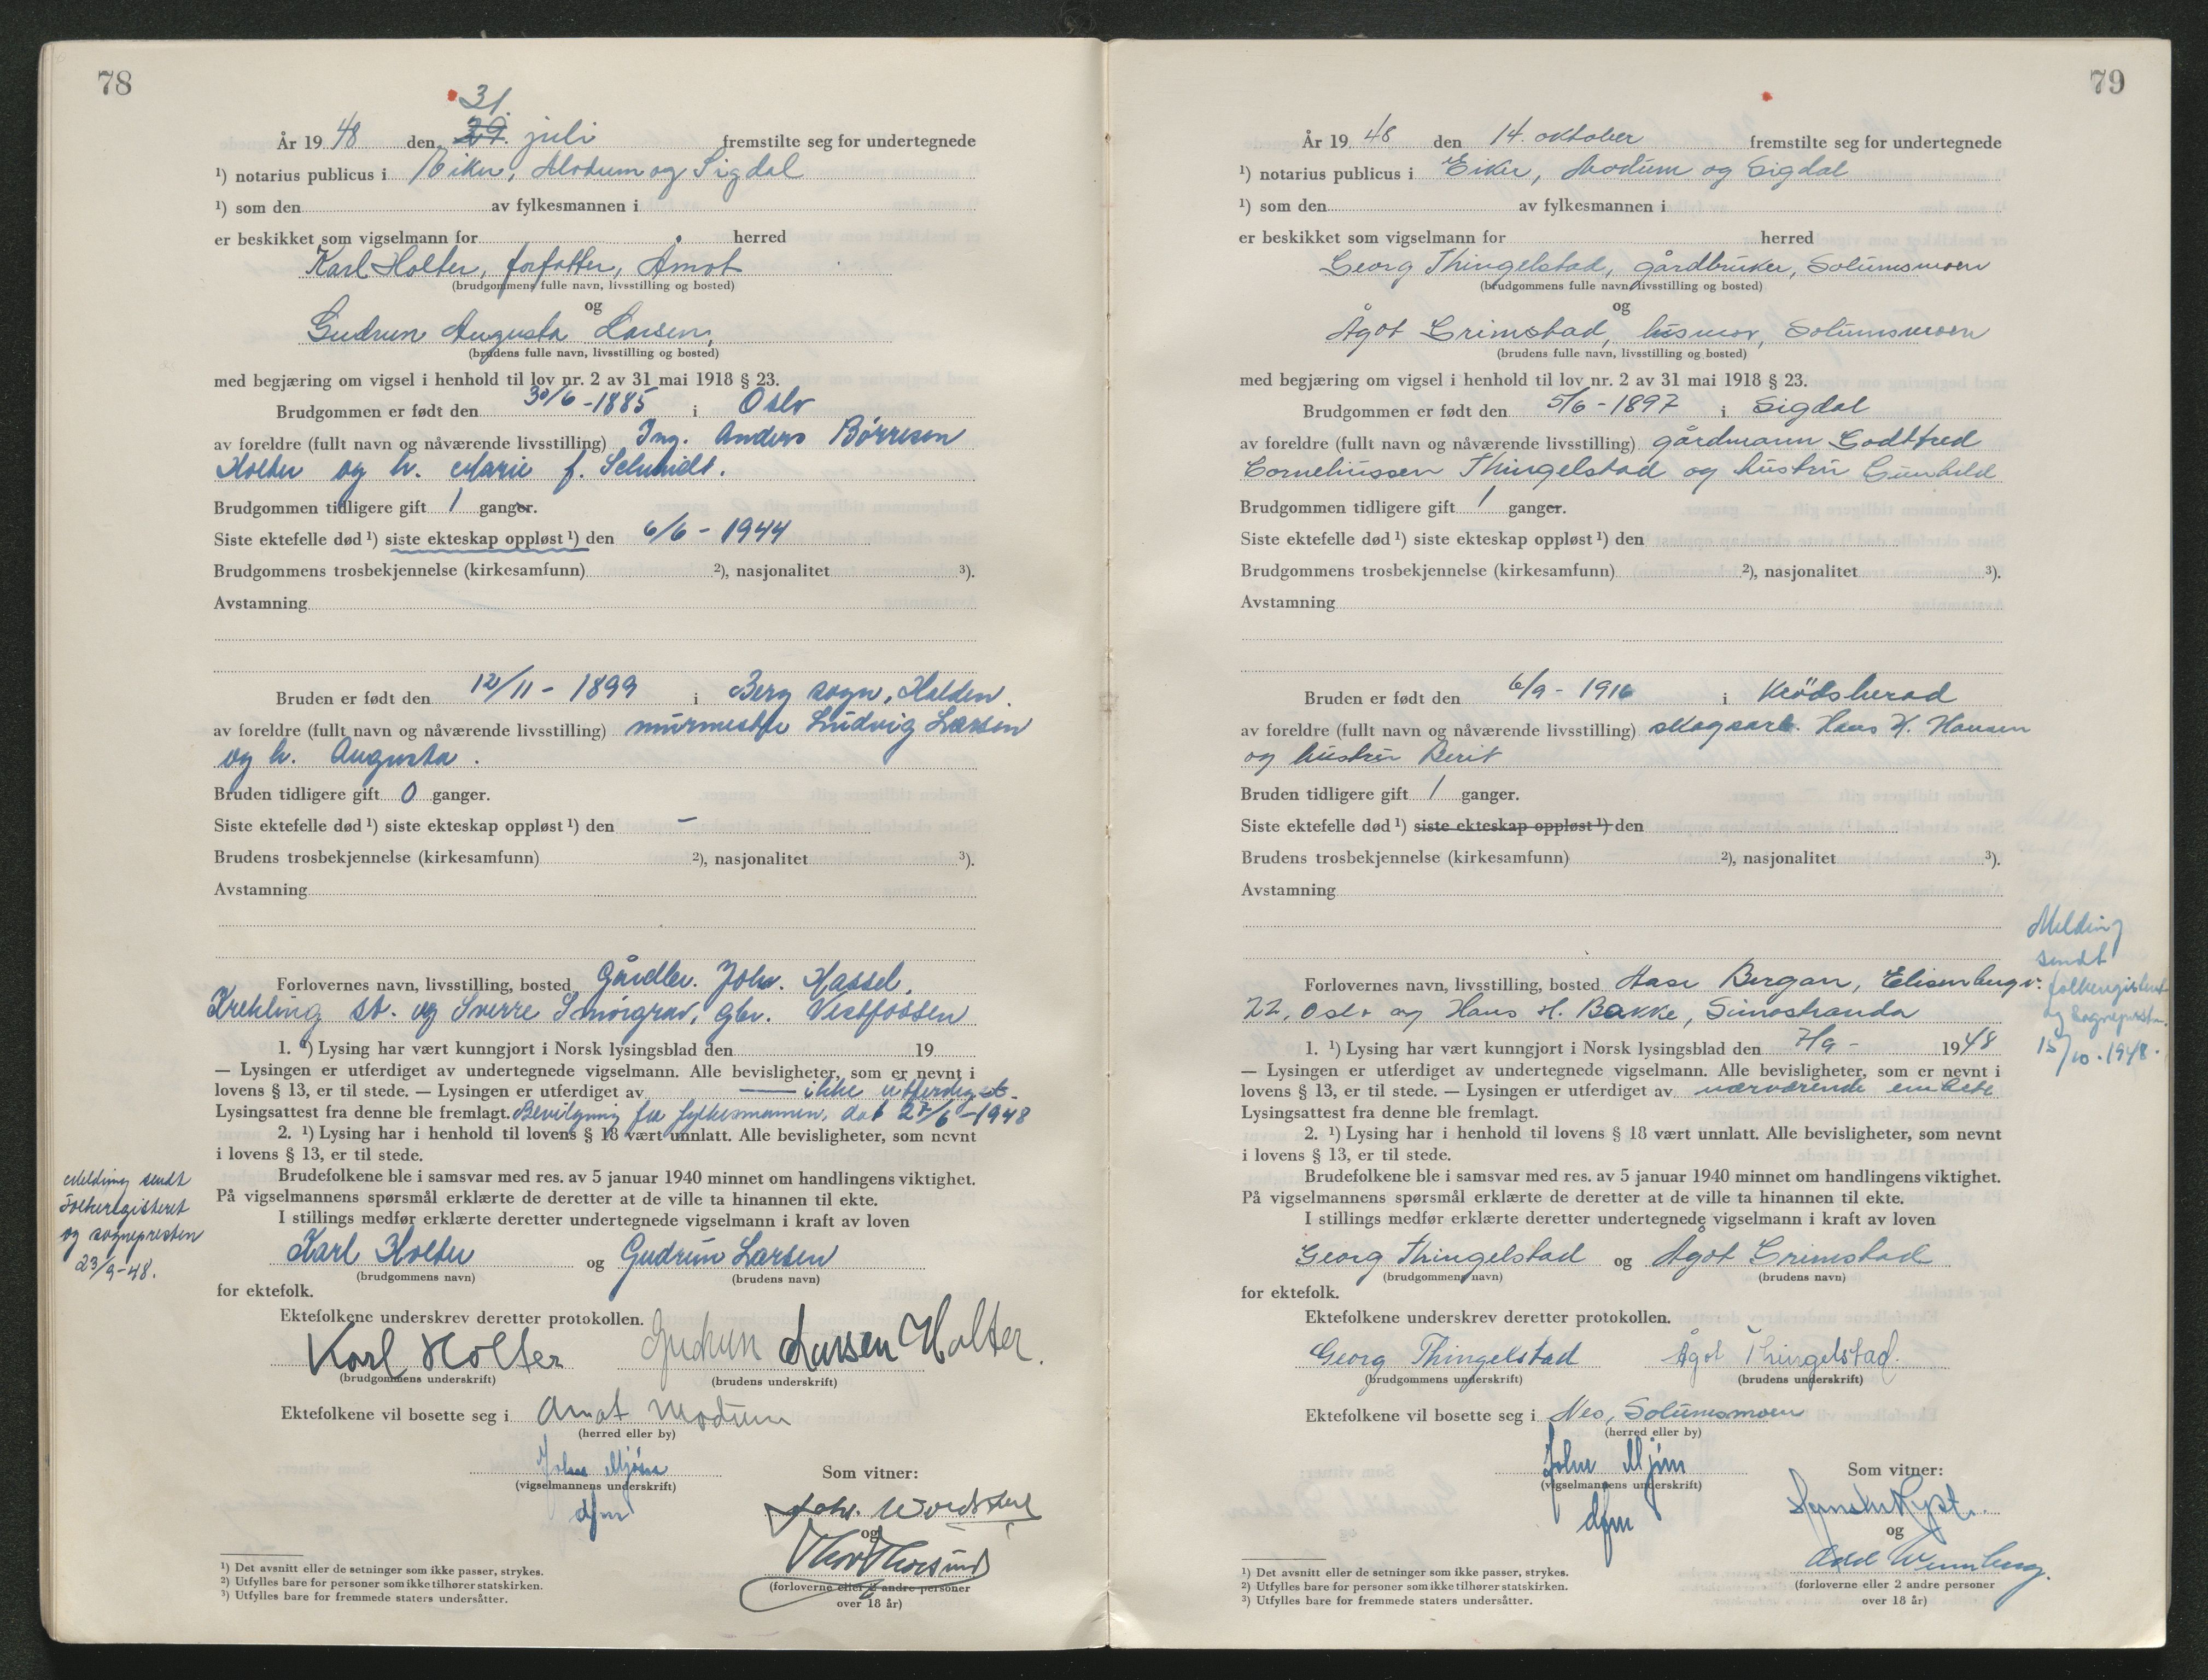 78
31.
År 19 48 den 29. juli fremstilte seg for undertegnede
¹) notarius publicus i Eiker, Modum og Sigdal
¹) som den av fylkesmannen i
er beskikket som vigselmann for herred
Karl Holter, forfatter, Åmot
(brudgommens fulle navn, livsstilling og bosted)
og
Gudrun Augusta Larsen,
(brudens fulle navn, livsstilling og bosted)
med begjæring om vigsel i henhold til lov nr. 2 av 31 mai 1918 § 23.
Brudgommen er født den 30/6-1885 i Oslo
av foreldre (fullt navn og nåværende livsstilling) Ing. Anders Börresen
Holter og h. Marie f. Schmidt.
Brudgommen tidligere gift 1 ganger.
Siste ektefelle død ¹) siste ekteskap oppløst ¹) den 6/6 - 1944
Brudgommens trosbekjennelse (kirkesamfunn) ²), nasjonalitet ³).
Avstamning
Bruden er født den 12/11 - 1899 i Berg sogn, Halden.
av foreldre (fullt navn og nåværende livsstilling) murmester Ludvig Larsen
og h. Augusta.
Bruden tidligere gift 0 ganger.
Siste ektefelle død ¹) siste ekteskap oppløst ¹) den -
Brudens trosbekjennelse (kirkesamfunn) ²), nasjonalitet ³).
Avstamning
Forlovernes navn, livsstilling, bosted Gårdbr. Johs. Hassel,
Krekling st. og Sverre Smörgrav, gbr. Vestfossen
1. ¹) Lysing har vært kunngjort i Norsk lysingsblad den 19
— Lysingen er utferdiget av undertegnede vigselmann. Alle bevisligheter, som er nevnt i
lovens § 13, er til stede. — Lysingen er utferdiget av — ikke utferdiget.
Lysingsattest fra denne ble fremlagt. Bevilgning fra fylkesmannen, dat 27/6-1948
2. ¹) Lysing har i henhold til lovens § 18 vært unnlatt. Alle bevisligheter, som nevnt
i lovens § 13, er til stede.
Brudefolkene ble i samsvar med res. av 5 januar 1940 minnet om handlingens viktighet.
På vigselmannens spørsmål erklærte de deretter at de ville ta hinannen til ekte.
I stillings medfør erklærte deretter undertegnede vigselmann i kraft av loven
Karl Holter og Gudrun Larsen
(brudgommens navn) (brudens navn)
for ektefolk.
Melding sendt
Folkeregisteret
og sognepresten
23/9-48.
Ektefolkene underskrev deretter protokollen.
Karl Holter Gudrun Larsen Holter.
(brudgommens underskrift) (brudens underskrift)
Ektefolkene vil bosette seg i Åmot Modum
(herred eller by)
(vigselmannens underskrift)
dfm
Som vitner:
og
(forloverne eller 2 andre personer
over 18 år)
¹) Det avsnitt eller de setninger som ikke passer, strykes.
²) Utfylles bare for personer som ikke tilhører statskirken.
³) Utfylles bare for fremmede staters undersåtter.
79
År 19 48 den 14. oktober fremstilte seg for undertegnede
¹) notarius publicus i Eiker, Modum og Sigdal
¹) som den av fylkesmannen i
er beskikket som vigselmann for herred
Georg Thingelstad, gårdbruker, Solumsmoen
(brudgommens fulle navn, livsstilling og bosted)
og
Ågot Grimstad, husmor, Solumsmoen
(brudens fulle navn, livsstilling og bosted)
med begjæring om vigsel i henhold til lov nr. 2 av 31 mai 1918 § 23.
Brudgommen er født den 5/6-1897 i Sigdal
av foreldre (fullt navn og nåværende livsstilling) gårdmann Godtfred
Corneliussen Thingelstad og hustru Gunhild
Brudgommen tidligere gift 1 ganger.
Siste ektefelle død ¹) siste ekteskap oppløst ¹) den
Brudgommens trosbekjennelse (kirkesamfunn) ²), nasjonalitet ³).
Avstamning
Bruden er født den 6/9 - 1916 i Krödsherad
av foreldre (fullt navn og nåværende livsstilling) skogsarb. Hans K. Hansen
og hustru Berit
Bruden tidligere gift 1 ganger.
Siste ektefelle død ¹) siste ekteskap oppløst ¹) den
Brudens trosbekjennelse (kirkesamfunn) ²), nasjonalitet ³).
Avstamning
Forlovernes navn, livsstilling, bosted Aase Bergan, Elisenbergv.
22, Oslo og Hans H. Bakke, Simostranda
Melding
sendt
folkeregisteret
og sognepresten
15/10-1948.
1. ¹) Lysing har vært kunngjort i Norsk lysingsblad den 7/9 - 1948
— Lysingen er utferdiget av undertegnede vigselmann. Alle bevisligheter, som er nevnt i
lovens § 13, er til stede. — Lysingen er utferdiget av nærværende embete
Lysingsattest fra denne ble fremlagt.
2. ¹) Lysing har i henhold til lovens § 18 vært unnlatt. Alle bevisligheter, som nevnt
i lovens § 13, er til stede.
Brudefolkene ble i samsvar med res. av 5 januar 1940 minnet om handlingens viktighet.
På vigselmannens spørsmål erklærte de deretter at de ville ta hinannen til ekte.
I stillings medfør erklærte deretter undertegnede vigselmann i kraft av loven
Georg Thingelstad og Ågot Grimstad
(brudgommens navn) (brudens navn)
for ektefolk.
Ektefolkene underskrev deretter protokollen.
Georg Thingelstad Ågot Thingelstad.
(brudgommens underskrift) (brudens underskrift)
Ektefolkene vil bosette seg i Nes, Solumsmoen
(herred eller by)
(vigselmannens underskrift)
dfm
Som vitner:
og
Odd Wennberg.
(forloverne eller 2 andre personer
over 18 år)
¹) Det avsnitt eller de setninger som ikke passer, strykes.
²) Utfylles bare for personer som ikke tilhører statskirken.
³) Utfylles bare for fremmede staters undersåtter.